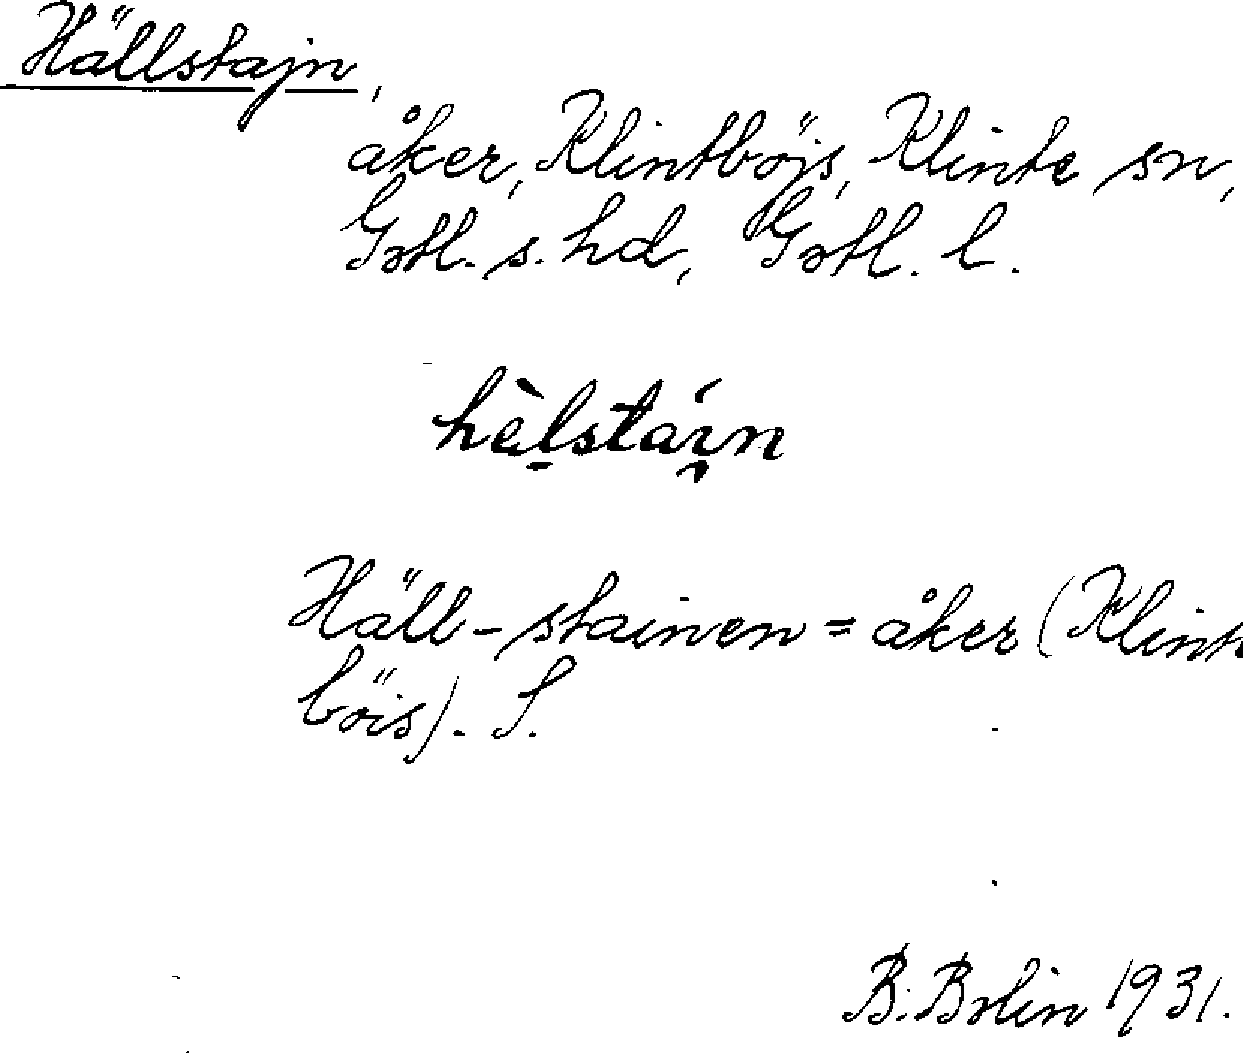 Hällstajn,
åker, Klintböjs, Klinte sn,
Gotl. s. hd, Gotl. l.
hèlstáin
Häll-stainen = åker (Klint
böis). S.
B. Bolin 1931.